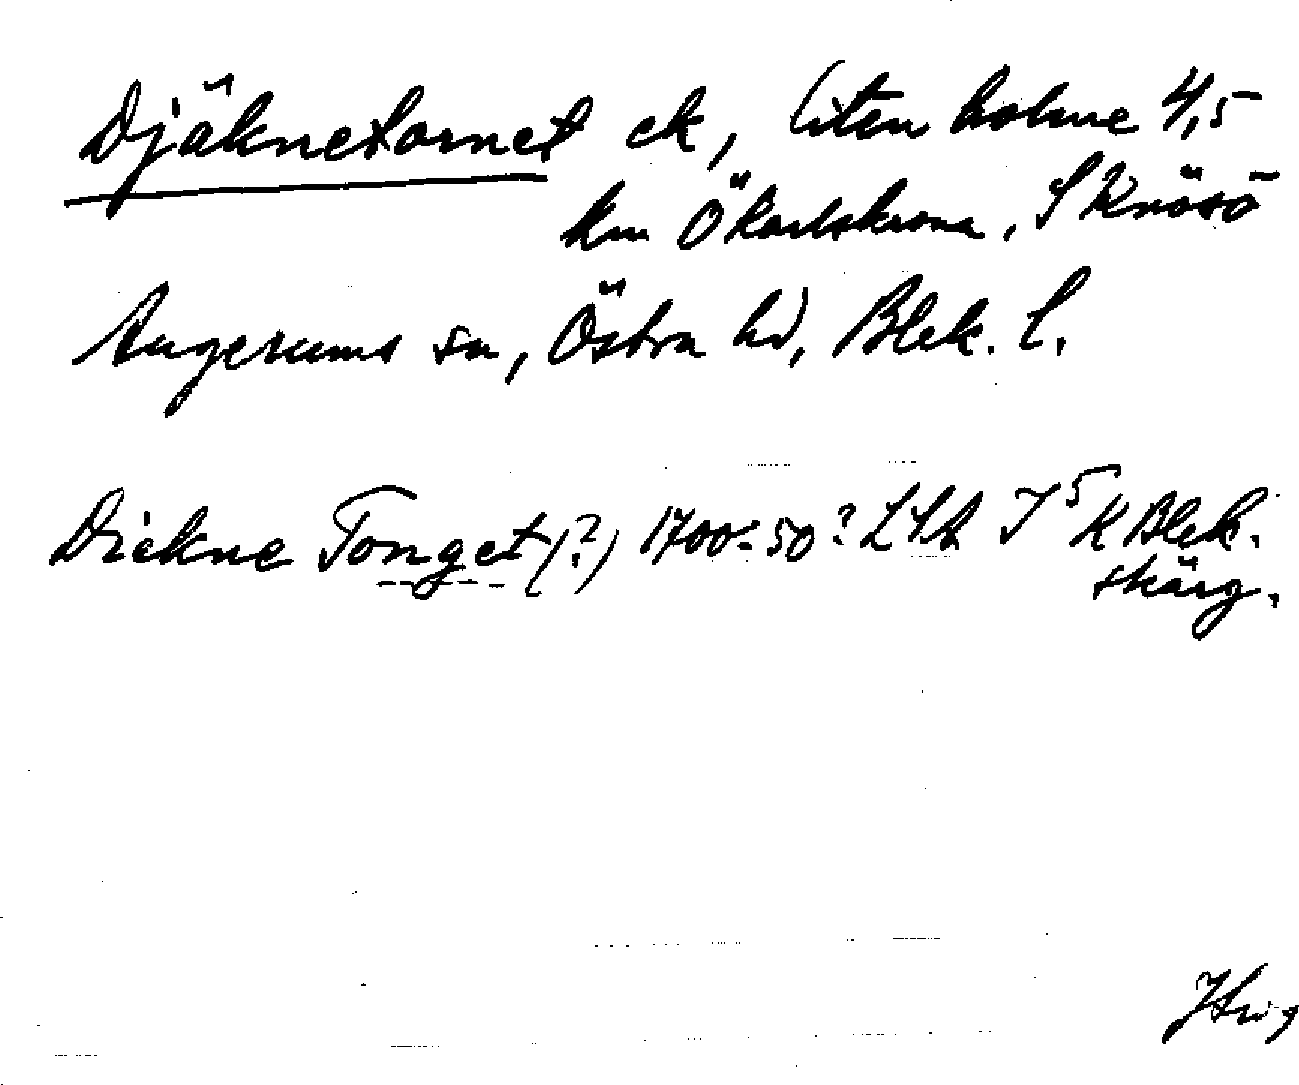 Djäknetornet ek, liten holme 4,5
km Ö Karlskrona, S Knösö
Augerums sn, Östra hd, Blek. l.
Diekne Tonget (?) 1700-50? LSA I 5 K Blek.
skärg.